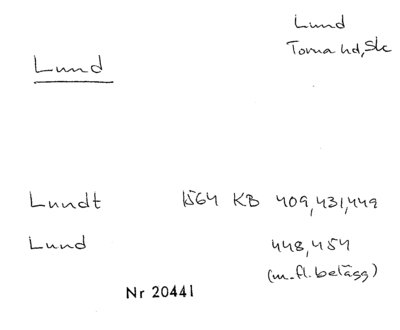 Lund
Torna hd, Sk
Lund
Lundt 1564 KB 409, 431, 449
Lund 448, 454
(m. fl. belägg)
Nr 20441